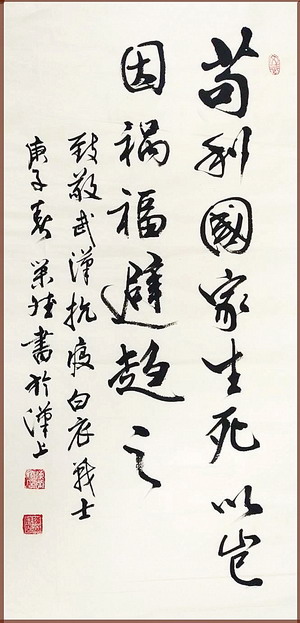 苟利國家生死以岂
因祸福避趋之
致敬武漢抗疫白衣戰士
庚子春 書於漢上